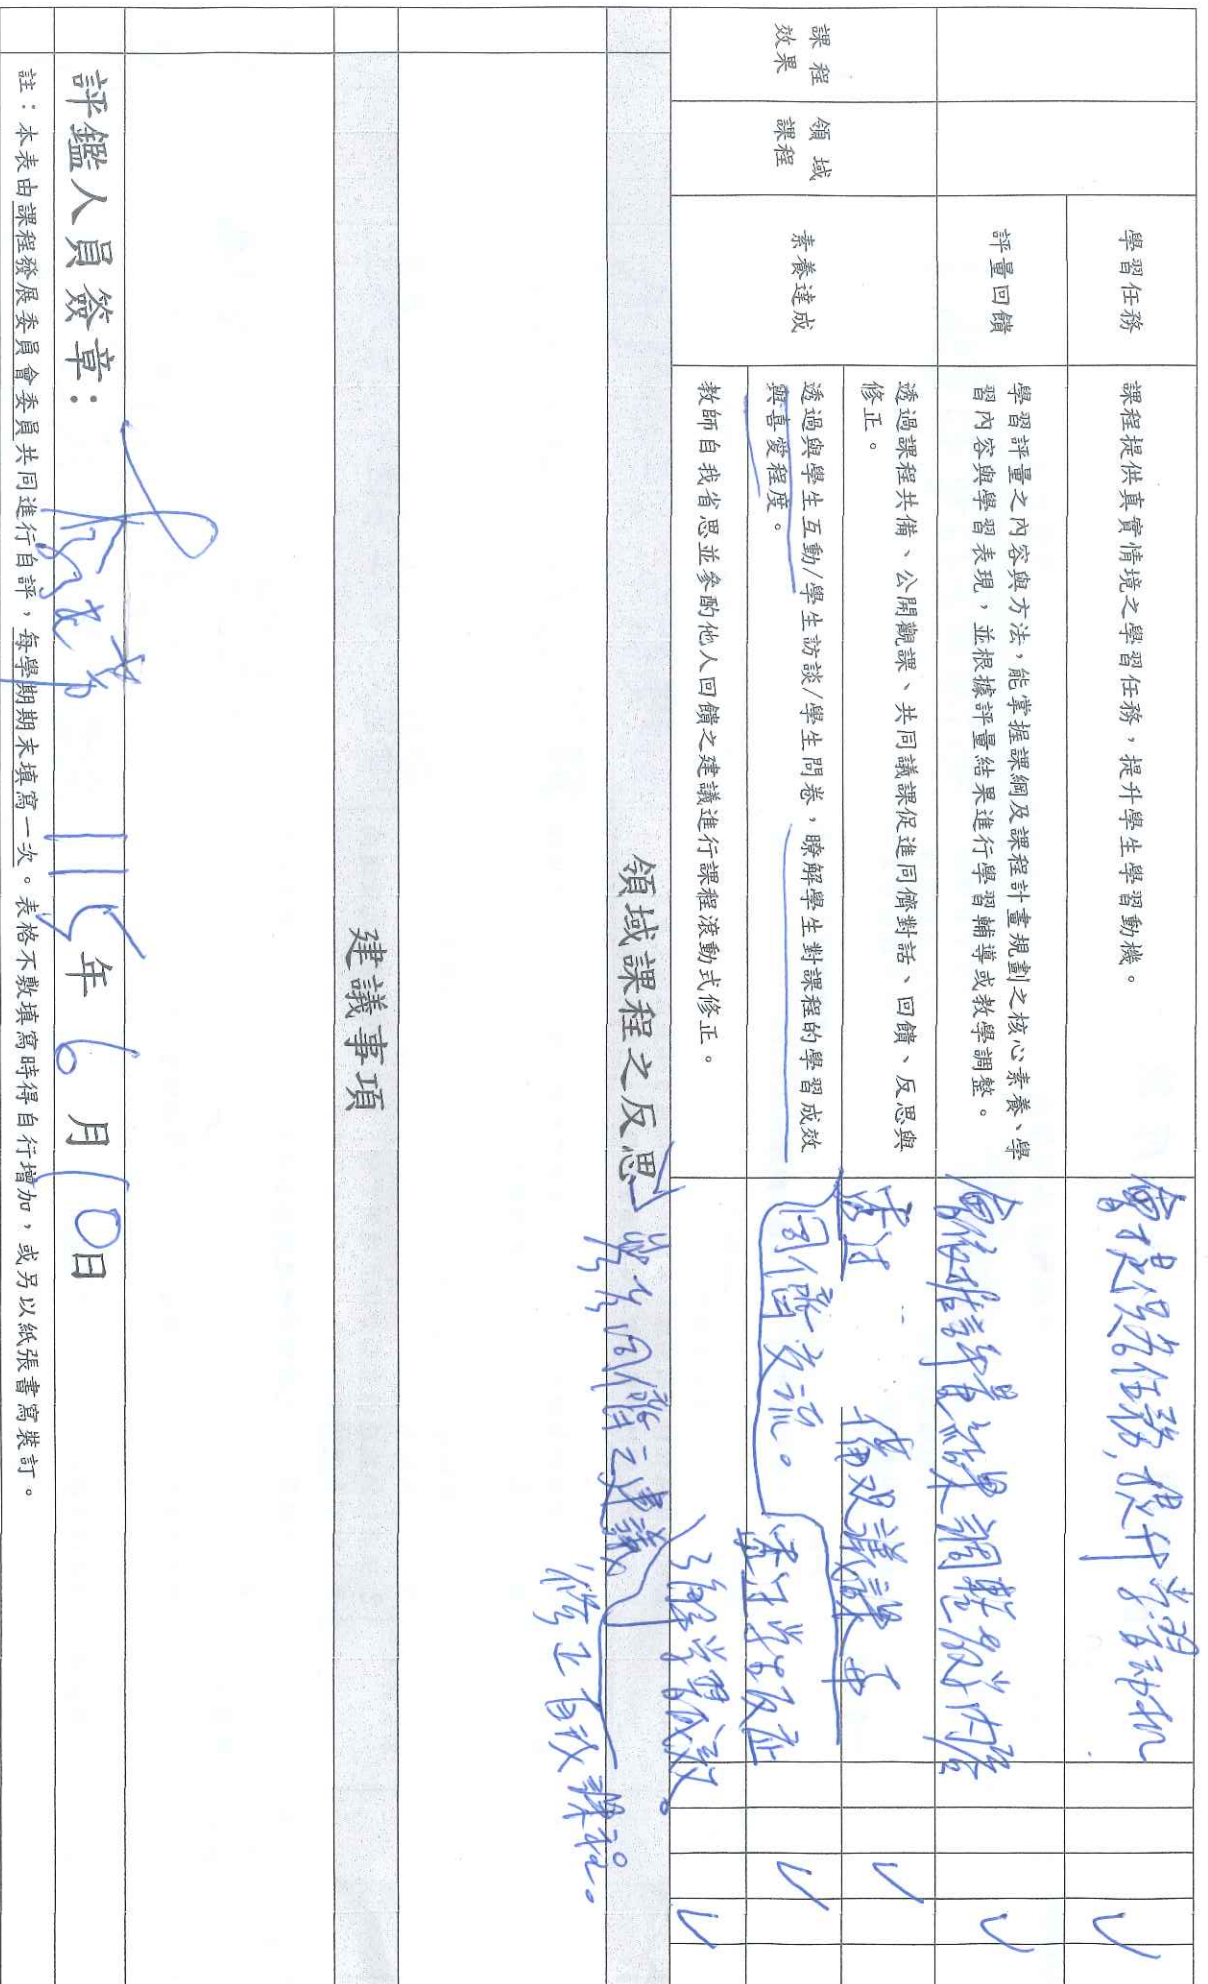 學習任務
課程提供真實情境之學習任務，提升學生學習動機。
會提供任務，提升學習動机
評量回饋
學習評量之內容與方法，能掌握課綱及課程計畫規劃之核心素養、學
習內容與學習表現，並根據評量結果進行學習輔導或教學調整。
會依據評量結果調整教學內容
課程
效果
領域
課程
素養達成
透過課程共備、公開觀課、共同議課促進同儕對話、回饋、反思與
修正。
透过
備观議課 再
同儕交流。
透過與學生互動/學生訪談/學生問卷，瞭解學生對課程的學習成效
與喜愛程度。
透过学生反应
了解学習成效。
教師自我省思並參酌他人回饋之建議進行課程滾動式修正。
領域課程之反思
参考同儕之建議
修正自我課程。
建議事項
評鑑人員簽章：
115年 6 月 10日
註：本表由課程發展委員會委員共同進行自評，每學期期末填寫一次。表格不敷填寫時得自行增加，或另以紙張書寫裝訂。